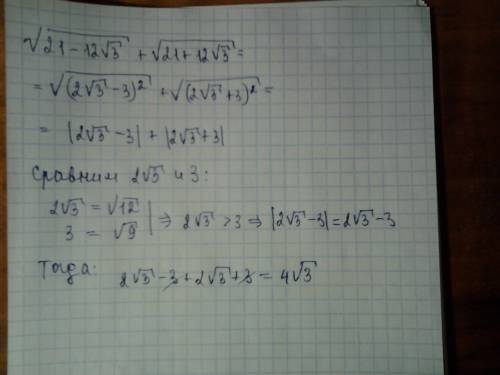 √(21 - 12√3) + √(21 + 12√3) =
= √((2√3 - 3)²) + √((2√3 + 3)²) =
= |2√3 - 3| + |2√3 + 3|
Сравним 2√3 и 3:
2√3 = √12
3 = √9 | ⇒ 2√3 > 3 ⇒ |2√3 - 3| = 2√3 - 3
Тогда: 2√3 - 3 + 2√3 + 3 = 4√3